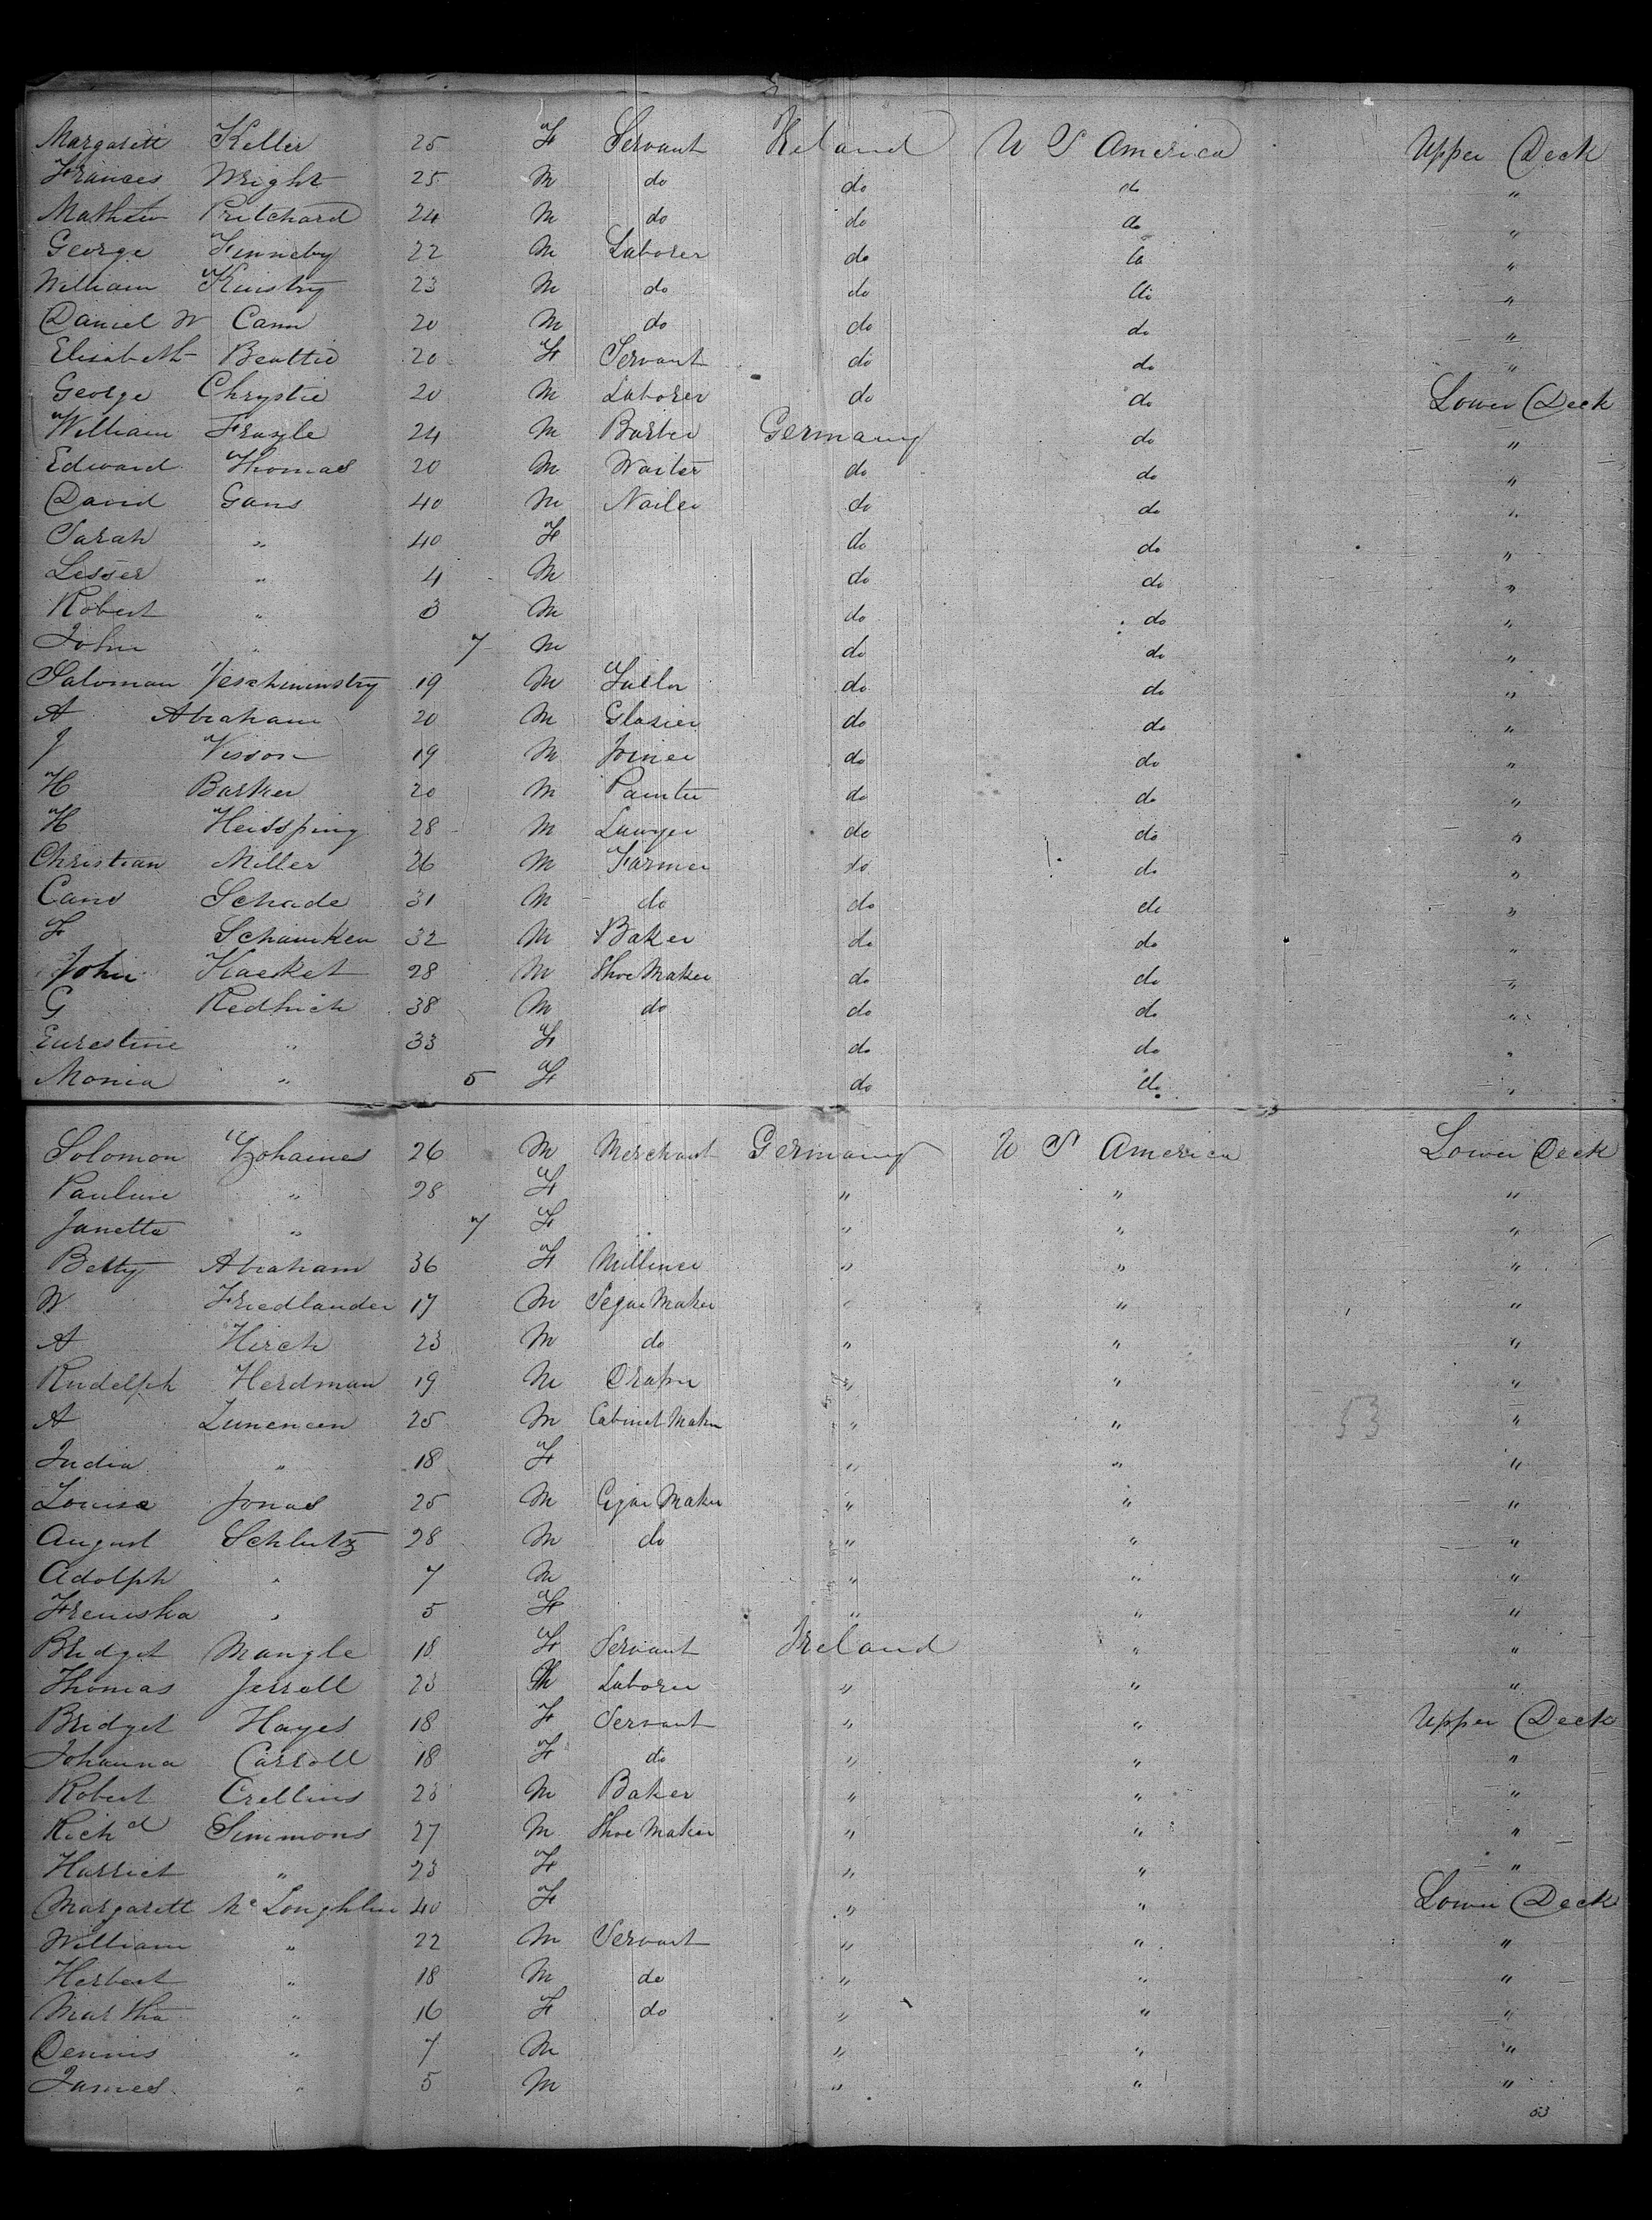 Margarett Keller 25 F Servant Ireland U S America Upper Deck
Frances Wright 25 M do do do "
Mathew Pritchard 24 M do do do "
George Finneby 22 M Laborer do do "
William Kinstry 23 M do do do "
Daniel W Cann 20 M do do do "
Elisabeth Beattie 20 F Servant do do "
George Chrystie 20 M Laborer do do Lower Deck
William Frayle 24 M Barber Germany do "
Edward Thomas 20 M Waiter do do "
David Gans 40 M Nailer do do "
Sarah " 40 F do do "
Lesser " 4 M do do "
Robert " 3 M do do "
John " 7 M do do "
Saloman 19 M do do "
A Abraham 20 M Glasier do do "
J Visson 19 M Joiner do do "
H Barker 20 M Painter do do "
H Heidsping 28 M Lawyer do do "
Christian Miller 26 M Farmer do do "
Schade 31 M do do do "
F Schamken 32 M Baker do do "
John Hacket 28 M Shoe Maker do do "
G Redhich 38 M do do do "
Eurestine " 33 F do do "
Monia " 5 F do do "
Solomon 26 M Merchant Germany U S America Lower Deck
Pauline " 28 F " " "
Janette " 7 F " " "
Betty Abraham 36 F Milliner " " "
W Friedlander 17 M Segar Maker " " "
A Hirch 23 M do " " "
Rudolph Herdman 19 M Draper " " "
A Lunencen 25 M Cabinet Maker " " "
53
India " 18 F " " "
Louise Jonas 25 M Cigar Maker " " "
August Schlutz 28 M do " " "
Adolph " 7 M " " "
Freniska " 5 F " " "
Bridget Mangle 18 F Servant Ireland " "
Thomas Jerrell 23 M Laborer " " "
Bridget Hayes 18 F Servant " " Upper Deck
Johanna Carroll 18 F do " " "
Robert Crellins 23 M Baker " " "
Richd Simmons 27 M Shoe Maker " " "
Harriet " 23 F " " "
Margarett Mc Loughlin 40 F " " Lower Deck
William " 22 M Servant " " "
Herbert " 18 M do " " "
Martha " 16 F do " " "
Dennis " 7 M " " "
James " 5 M " " "
53